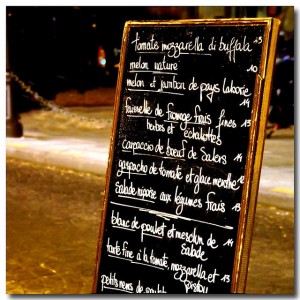 tomate mozzarella di buffala 15
melon nature 10
melon et jambon de pays 14
faisselle de fromage frais fines
herbes et échalottes
carpaccio de bœuf de Salers 14
gaspacho de tomate et glace menthe 12
salade niçoise aux légumes frais 13
blanc de poulet et mesclun de 14
salade
tarte fine à la tomate, mozzarella et 13
pistou
petits